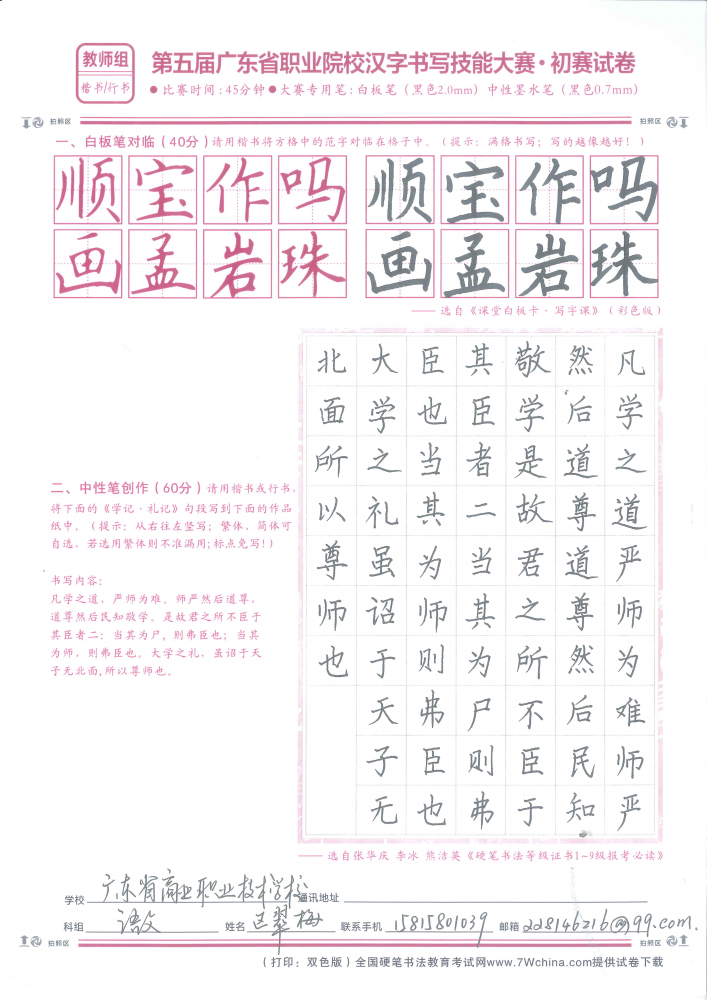 教师组
楷书/行书
第五届广东省职业院校汉字书写技能大赛·初赛试卷
●比赛时间:45分钟●大赛专用笔:白板笔(黑色2.0mm) 中性墨水笔(黑色0.7mm)
拍照区 拍照区
一、白板笔对临(40分)请用楷书将方格中的范字对临在格子中。(提示:满格书写;写的越像越好!)
顺宝作吗 顺宝作吗
画孟岩珠 画孟岩珠
——选自《课堂白板卡·写字课》(彩色版)
凡学之道严师为难师严
然后道尊道尊然后民知
敬学是故君之所不臣于
其臣者二当其为尸则弗
臣也当其为师则弗臣也
大学之礼虽诏于天子无
北面所以尊师也
二、中性笔创作(60分)请用楷书或行书,
将下面的《学记·礼记》句段写到下面的作品
纸中。(提示:从右往左竖写;繁体、简体可
自选,若选用繁体则不准漏用;标点免写!)
书写内容:
凡学之道,严师为难。师严然后道尊,
道尊然后民知敬学。是故君之所不臣于
其臣者二:当其为尸,则弗臣也;当其
为师,则弗臣也。大学之礼,虽诏于天
子无北面,所以尊师也。
——选自张华庆 李冰 熊洁英《硬笔书法等级证书1~9级报考必读》
学校 广东省商业职业技术学校 通讯地址
科组 语文 姓名 区翠梅 联系手机 15815801039 邮箱 228146216@qq.com.
拍照区 拍照区
(打印:双色版)全国硬笔书法教育考试网www.7Wchina.com提供试卷下载